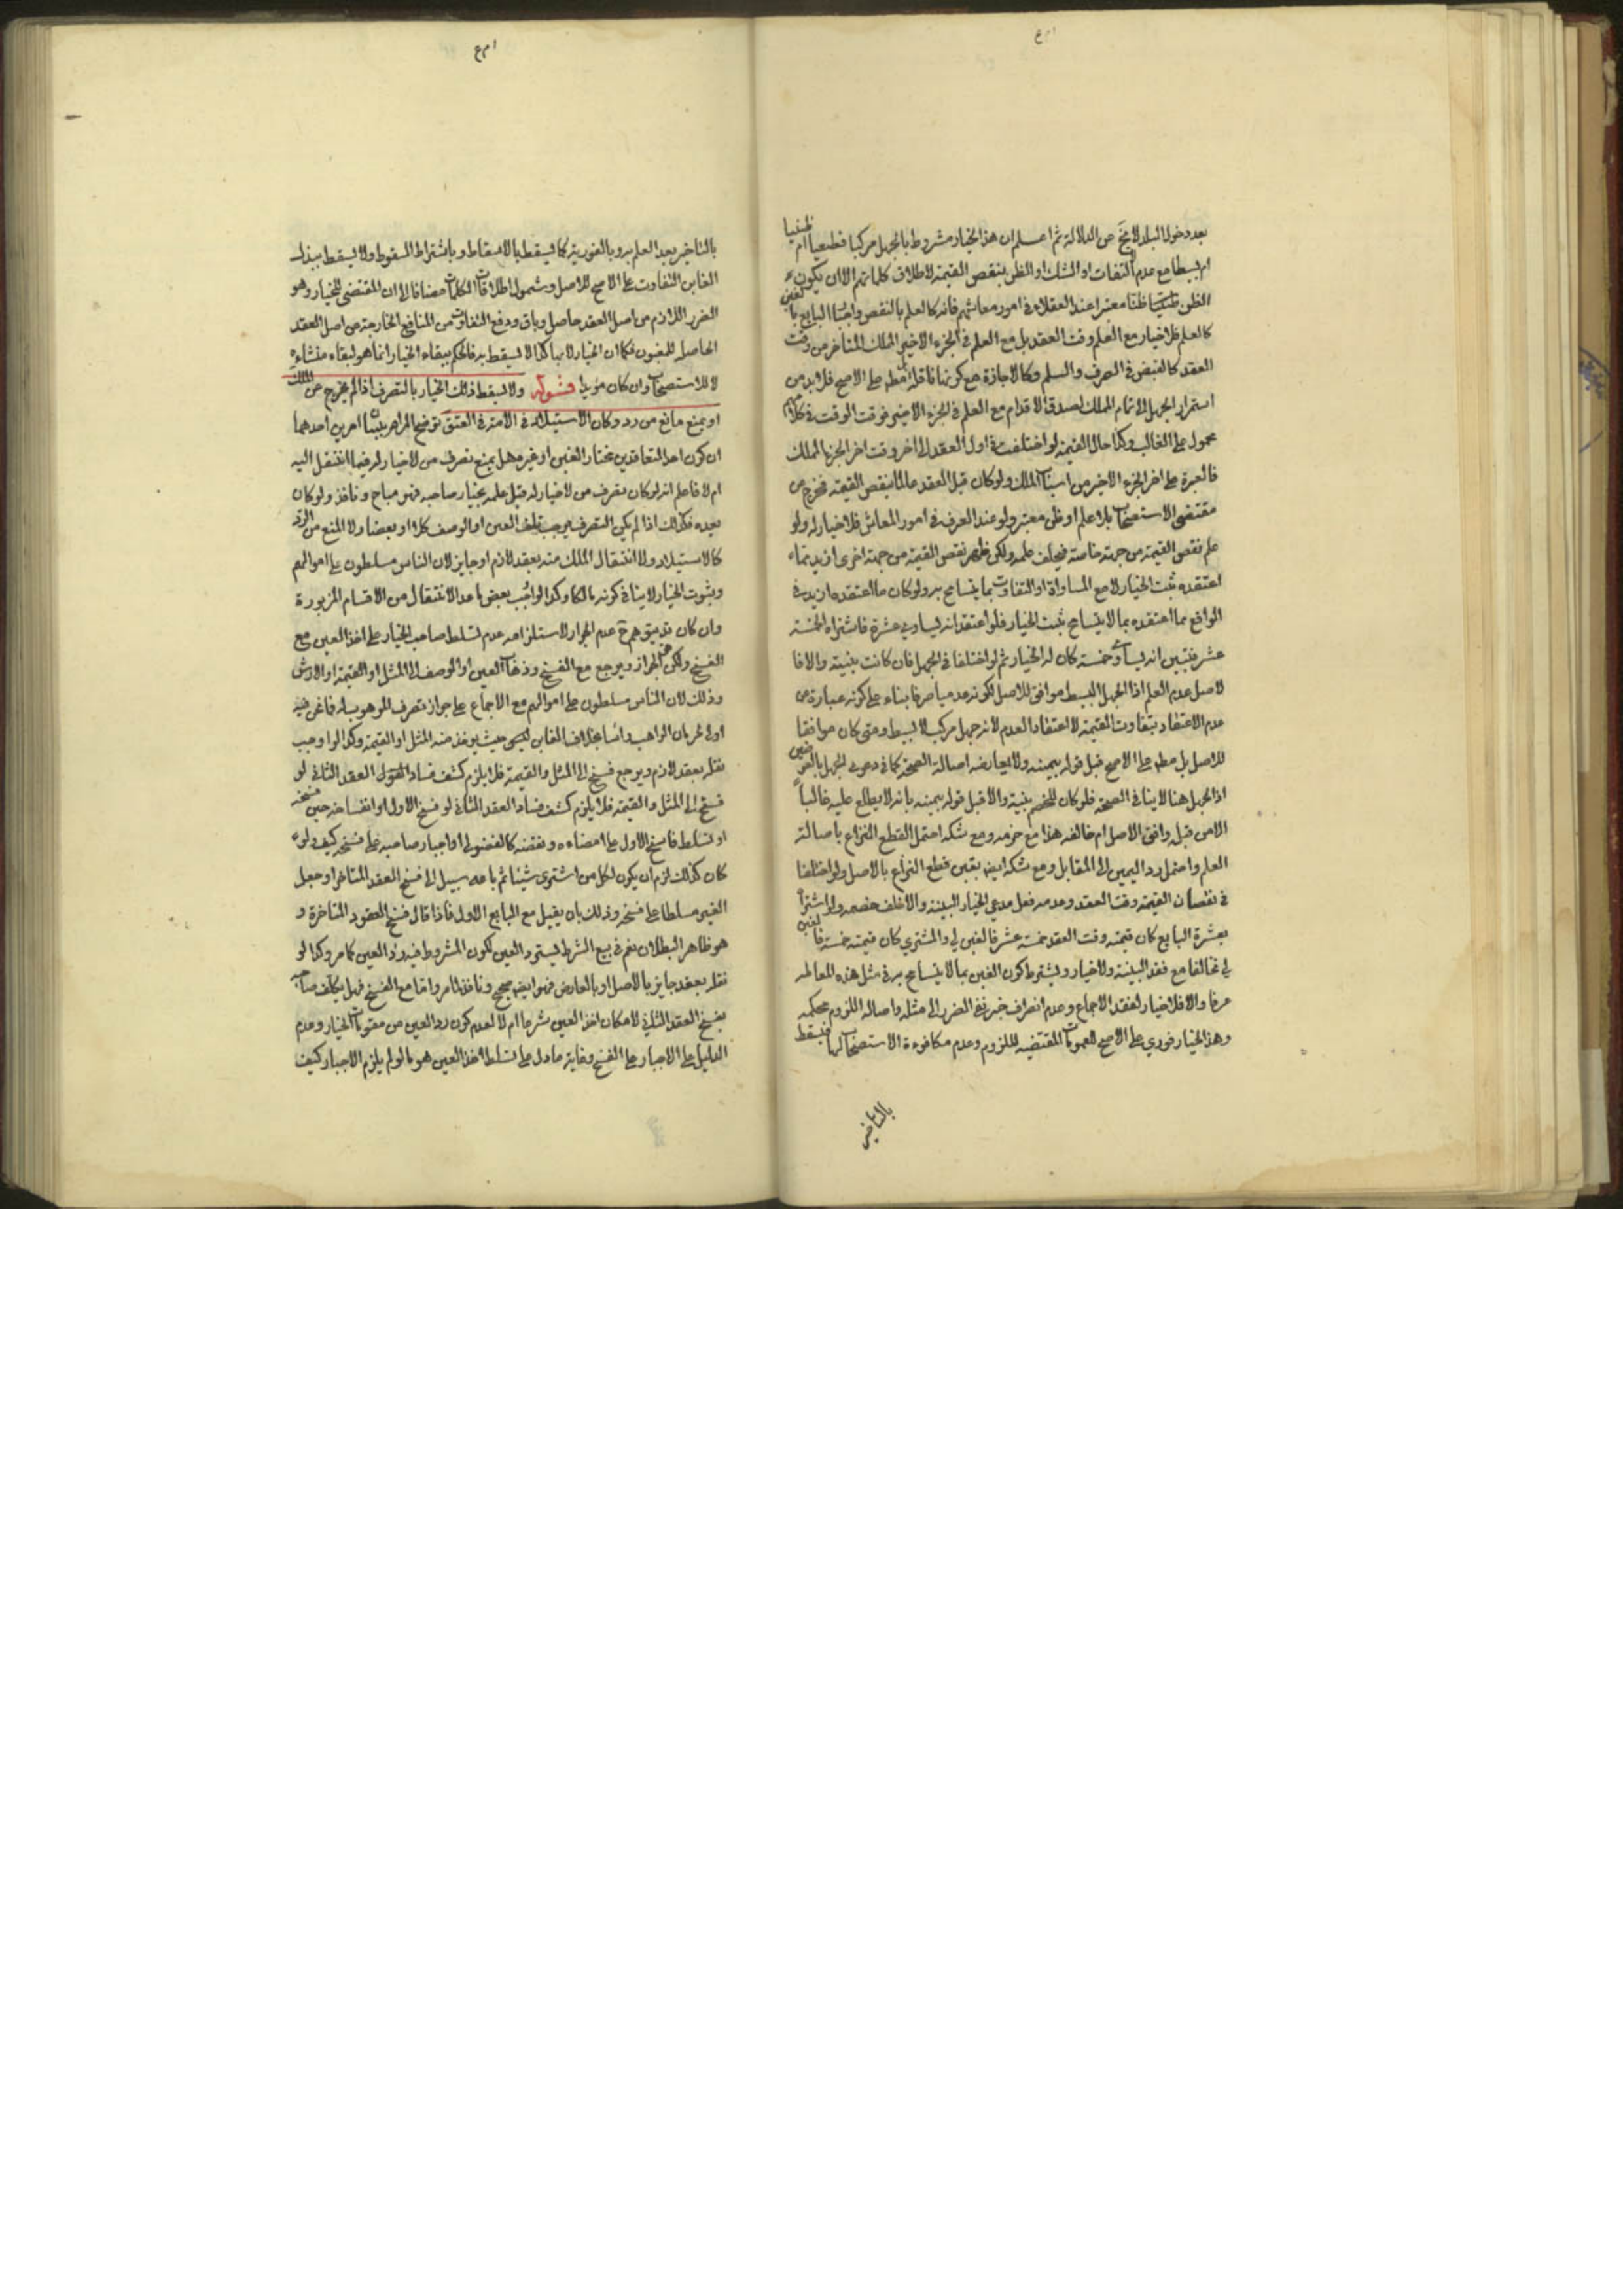 بعد دخول البلد لا يخ عن الدلالة ثم اعلم ان هذا الخيار مشروط بالجهل مركبا قطعيا ام ظنيا
ام بسيطا مع عدم التفات او الشك او الظن بنقص القيمة لاطلاق كلماتهم الا ان يكون
الظن ظنا معتبرا عند العقلاء في امور معاشهم فانه كالعلم بالنقص البايع بالغبن
كالعلم فلا خيار مع العلم وقت العقد بل مع العلم في الجزء الاخير المملك المتاخر من وقت
العقد كالقبض في الصرف والسلم وكالاجازة مع كونها ناقلة مطم على الاصح فلا بد من
استمرار الجهل الى تمام المملك لصدق الاقدام مع العلم في الجزء الاخير فوقت الوقت في كلامهم
محمول على الغالب وكذا حال القيمة لو اختلفت في اول العقد الى اخر وقت اخر الجزء المملك
فالعبرة على اخر الجزء الاخير من اسباب الملك ولو كان قبل العقد عالما بنقص القيمة فخرج عن
مقتضى الاستصحاب بلا علم او ظن معتبر ولو عند العرف في امور المعاش فلا خيار له ولو
علم نقص القيمة من جهة خاصة فيخلف علمه ولكن ظهر نقص القيمة من جهة اخرى ازيد مما
اعتقده ثبت الخيار لا مع المساواة او التفاوت بما يتسامح به ولو كان ما اعتقده ازيد في
الواقع مما اعتقده بما لا يتسامح ثبت الخيار فلو اعتقد انه يساوي عشرة فاشتراه بخمسة
عشر فتبين انه يساوي خمسة كان له الخيار ثم لو اختلفا في الجهل فان كانت بينة والا فا
لاصل عدم العلم اذ الجهل البسيط موافق للاصل لكونه عدميا صرفا بناء على كونه عبارة عن
عدم الاعتقاد بتفاوت القيمة لا اعتقاد العدم لانه جهل مركب لا بسيط ومتى كان موافقا
للاصل بل مطم على الاصح قبل قوله بيمينه ولا يعارضه اصالة الصحة كما في دعوى الجهل بالعوضين
اذ الجهل هنا لا ينافي الصحة فلو كان للخصم بينة والا قبل قوله بيمينه بانه لا يطلع عليه غالبا
الامن قبله وافق الاصل ام خالفه هذا مع جزمه ومع شكه احتمل القطع النزاع باصالة
العلم واحتمل رد اليمين الى المقابل ومع شكه ايض يقين قطع النزاع بالاصل ولو اختلفا
في نقصان القيمة وقت العقد وعدمه فعل مدعي الخيار البينة والا حلف خصمه ولو اشتراه
بعشرة البايع كان قيمته وقت العقد خمسة عشر فالغبن لي والمشتري كان قيمته خمسة فالغبن
لي تحالفا مع فقد البينة ولا خيار ويشترط كون الغبن بما لا يتسامح به في مثل هذه المعاملة
عرفا والا فلا خيار لفقد الاجماع وعدم انصراف خبر نفي الضرر الى مثله واصالة اللزوم محكمة
وهذا الخيار فوري على الاصح لعمومات المقتضيه للزوم وعدم مكافوءة الاستصحاب لها فيسقط
بالتاخير
بالتاخير بعد العلم به وبالفورية كما يسقط بالاسقاط وباشتراط السقوط ولا يسقط ببذل
الغابن التفاوت على الاصح للاصل وشمول اطلاقات الكلمات مضافا الى ان المقتضى للخيار وهو
الضرر اللازم من اصل العقد حاصل وباق ودفع التفاوت من المنافع الخارجة من اصل العقد
الحاصلة للمغبون فكما ان الخيار لا بها كذا لا يسقط به فالحكم ببقاء الخيار انما هو لبقاء منشاءه
لا للاستصحاب وان كان مؤيدا قوله ولا يسقط ذلك الخيار بالتصرف اذا لم يخرج عن الملك
او يمنع مانع من رد وكان الاستيلاد في الامة في العتق توضيح المرام ببيان امرين احدهما
ان كون احد المتعاقدين مختار الغبن او غيره هل يمنع تصرف من لا خيار له فيما انتقل اليه
ام لا فاعلم انه لو كان تصرف من لا خيار له قبل علمه بخيار صاحبه فهو مباح ونافذ ولو كان
بعده فكذلك اذا لم يكن التصرف يوجب تلف العين او الوصف كلا او بعضا ولا المنع من الرد
كالاستيلاد ولا انتقال الملك منه بعقد لازم او جايز لان الناس مسلطون على اموالهم
وثبوت الخيار لا ينافي كونه مالكا وكذا لو اوجب بعض ما عدا الانتقال من الاقسام المزبورة
وان كان قد يتوهم ح عدم الجواز لاستلزامه عدم تسلط صاحب الخيار على اخذ العين مع
الفسخ ولكن الجواز ويرجع مع الفسخ وذهاب العين او الوصف الى المثل او القيمة او الارش
وذلك لان الناس مسلطون على اموالهم مع الاجماع على جواز تصرف الموهوب له فما نحن فيه
اولى لحرمان الواهب راسا بخلاف الغابن حيث يوخذ منه المثل او القيمة وكذا لو اوجب
نقله بعقد لازم ويرجع فسخ الى المثل والقيمة فلا يلزم كشف فساد العقد الثاني لو
فسخ الى المثل والقيمة فلا يلزم كشف فساد العقد الثاني لو فسخ الاول او انفساخه حين فسخه
او تسلط فاسخ الاول على امضاءه ونقضه كالفضولي او اجبار صاحبه على فسخه كيف ولو
كان كذلك لزم ان يكون لكل من اشترى شيئا ثم باعه سبيل الى فسخ العقد المتاخر او جعل
الغير مسلطا على فسخه وذلك بان يقيل مع البايع الاول فاذا قال فسخ العقود المتاخرة و
هو ظاهر البطلان نعم في بيع الشرط يسترد العين لكون المشروط فيه رد العين كما مر وكذا لو
نقله بعقد جايز بالاصل او بالعارض فهو ايض صحيح ونافذ لما مر واما مع الفسخ فهل يكلف صاحبه
بفسخ العقد الثاني لامكان اخذ العين شرعا ام لا لعدم كون رد العين من مقومات الخيار وعدم
الدليل على الاجبار على الفسخ وغاية ما دل على تسلط اخذ العين هو ما لو لم يلزم الاجبار كيف